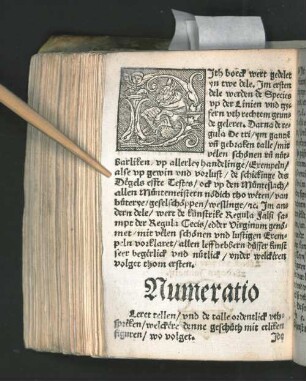 Dith boeck wert gedelet
yn twe dele. Im ersten
dele werden de Species
vp der Linien vnd gy
fern vth rechtem grunt
de geleret. Darna de re
gula De tri / ym gantzē
vñ gebraken talle / mit
velen schönen vñ nüt
barliken / vp allerley handelinge / Exempeln /
alse vp gewin vnd vorlust / de schickinge des
Degels effte Testes / ock vp den Müntesslach /
allen Müntemeistern nödich tho weten / van
büterye / geselschoppen / wesslinge / ꝛc. Im an
dern dele / wert de künstrike Regula Falsi sam
pt der Regula Cecis / edder Virginum genö
met / mit velen schönen vnd lustigen Exem-
peln vorklaret / allen leeffhebbern düsser kunst
seer begirlick vnd nütlick / vnder welckeren
volget thom ersten.
Numeratio
Leret tellen / vnd de talle ordentlick vth-
spreken / welckere denne geschüth mit etliken
figuren / wo volget.